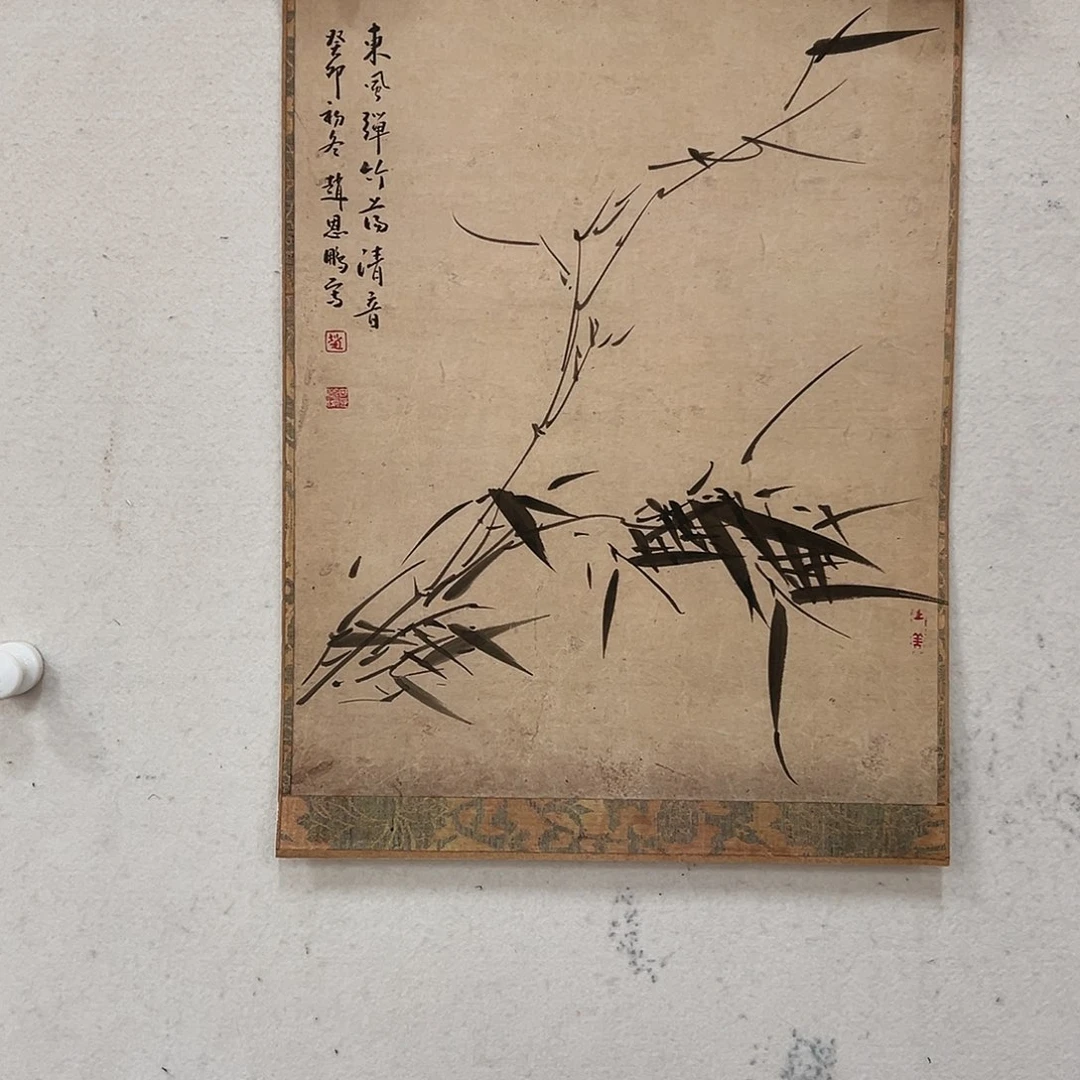 東風彈竹蕩清音
癸卯初冬趙恩鵬寫